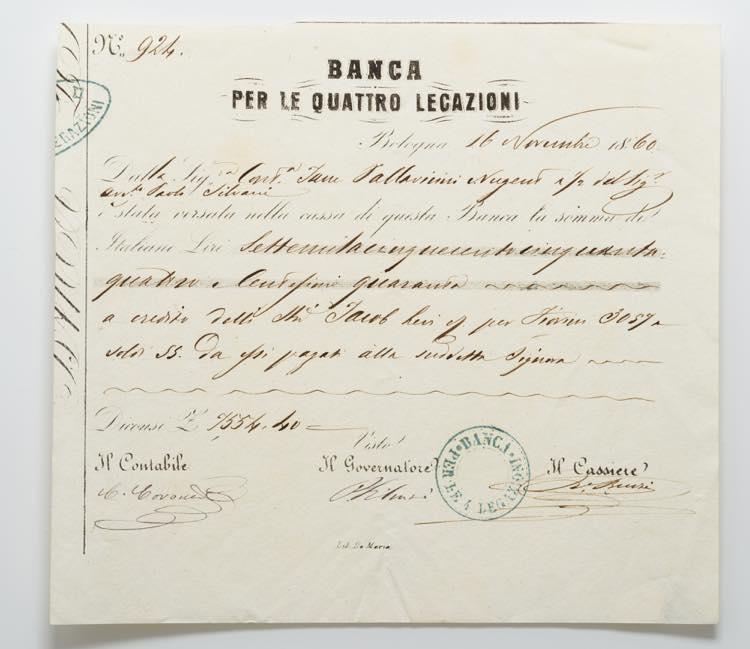 N.° 924.
BANCA
PER LE QUATTRO LEGAZIONI
Bologna 16 Novembre 1860
Dalla Sig.ra Cont.a Jane Pallavicini Nugent a/2 del Sig.r
Paolo Silvani
è stata versata nella cassa di questa Banca la somma di
Italiane Lire Settemilacinquecentocinquanta-
quattro e Centesimi quaranta
a credito delli Jacob per Fiorini 3057 e
soldi 55. da essi pagati alla suddetta Signora
Diconsi £ 7554.40=
Visto
Il Contabile Il Governatore Il Cassiere
BANCA PER LE 4 LEGAZIONI
Lit. De Maria
EGAZIONI